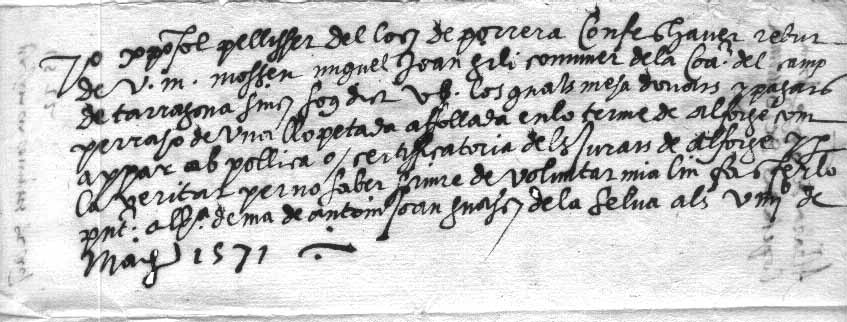 Jo xpofol pellisser del loch de porrera Confes haver rebut
de v. m. mossen miquel Joan gili comuner de la Coa. del camp
de tarragona sinch so dich v ss. los quals mesa donats y pagats
per raho de una llopetada assollada en lo terme de alforge com
appar ab pollica o certificatoria dels Jurats de alforge y per
la veritat per no saber scriure de voluntat mia lin fas fer lo
pnt. alba. de ma de antoni Joan guasch de la selva als vint de
Maig 1571